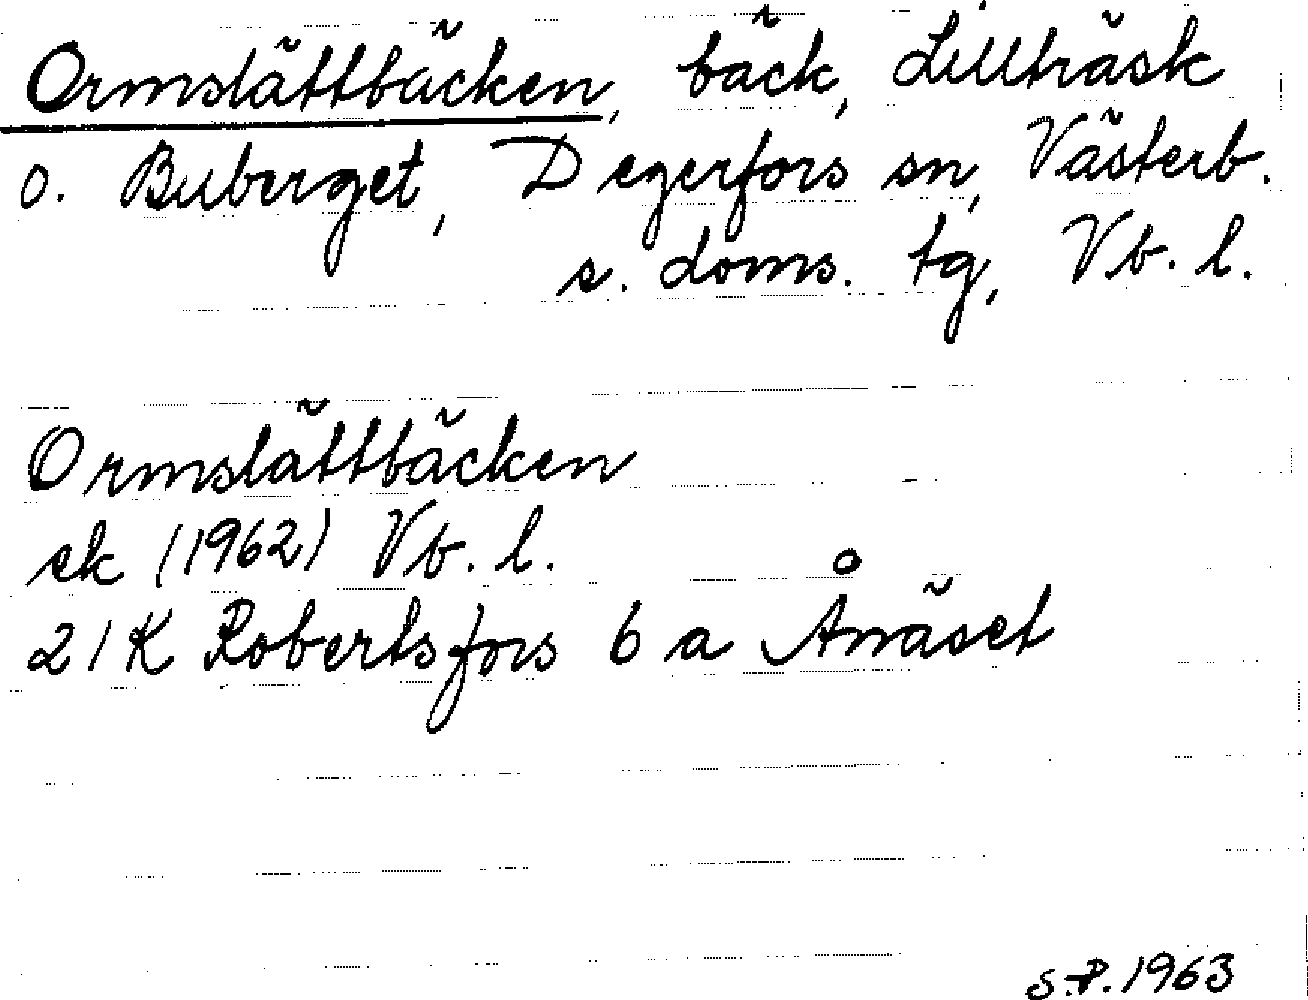 Ormslättbäcken, bäck, Lillträsk
o. Buberget, Degerfors sn, Västerb.
s. doms. tg, Vb. l.
Ormslättbäcken
ek (1962) Vb. l.
21K Robertsfors 6 a Ånäset
S.P. 1963